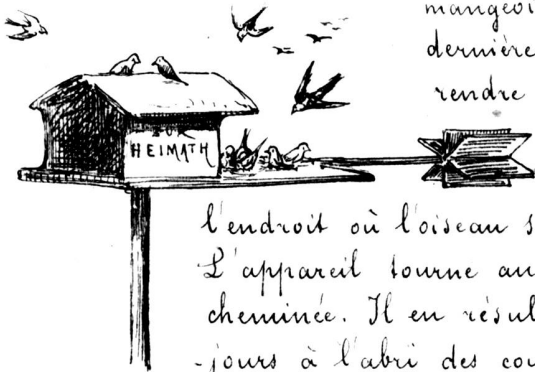 mangeoi
dernière
rendre
ZUR
HEIMATH
l'endroit où l'oiseau s
L'appareil tourne au
cheminée. Il en résul
-jours à l'abri des cou